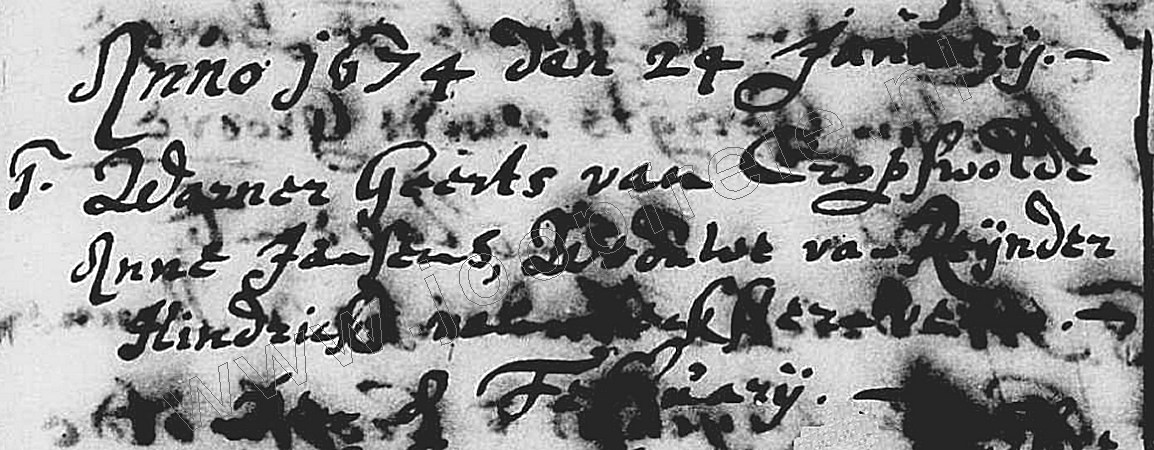 Anno 1674 den 24 Januarij. -
T. Warner Geerts van Cropswolde
Anne Jansens, Weduwe van Reÿnder
Hindricks van
Februarij. -